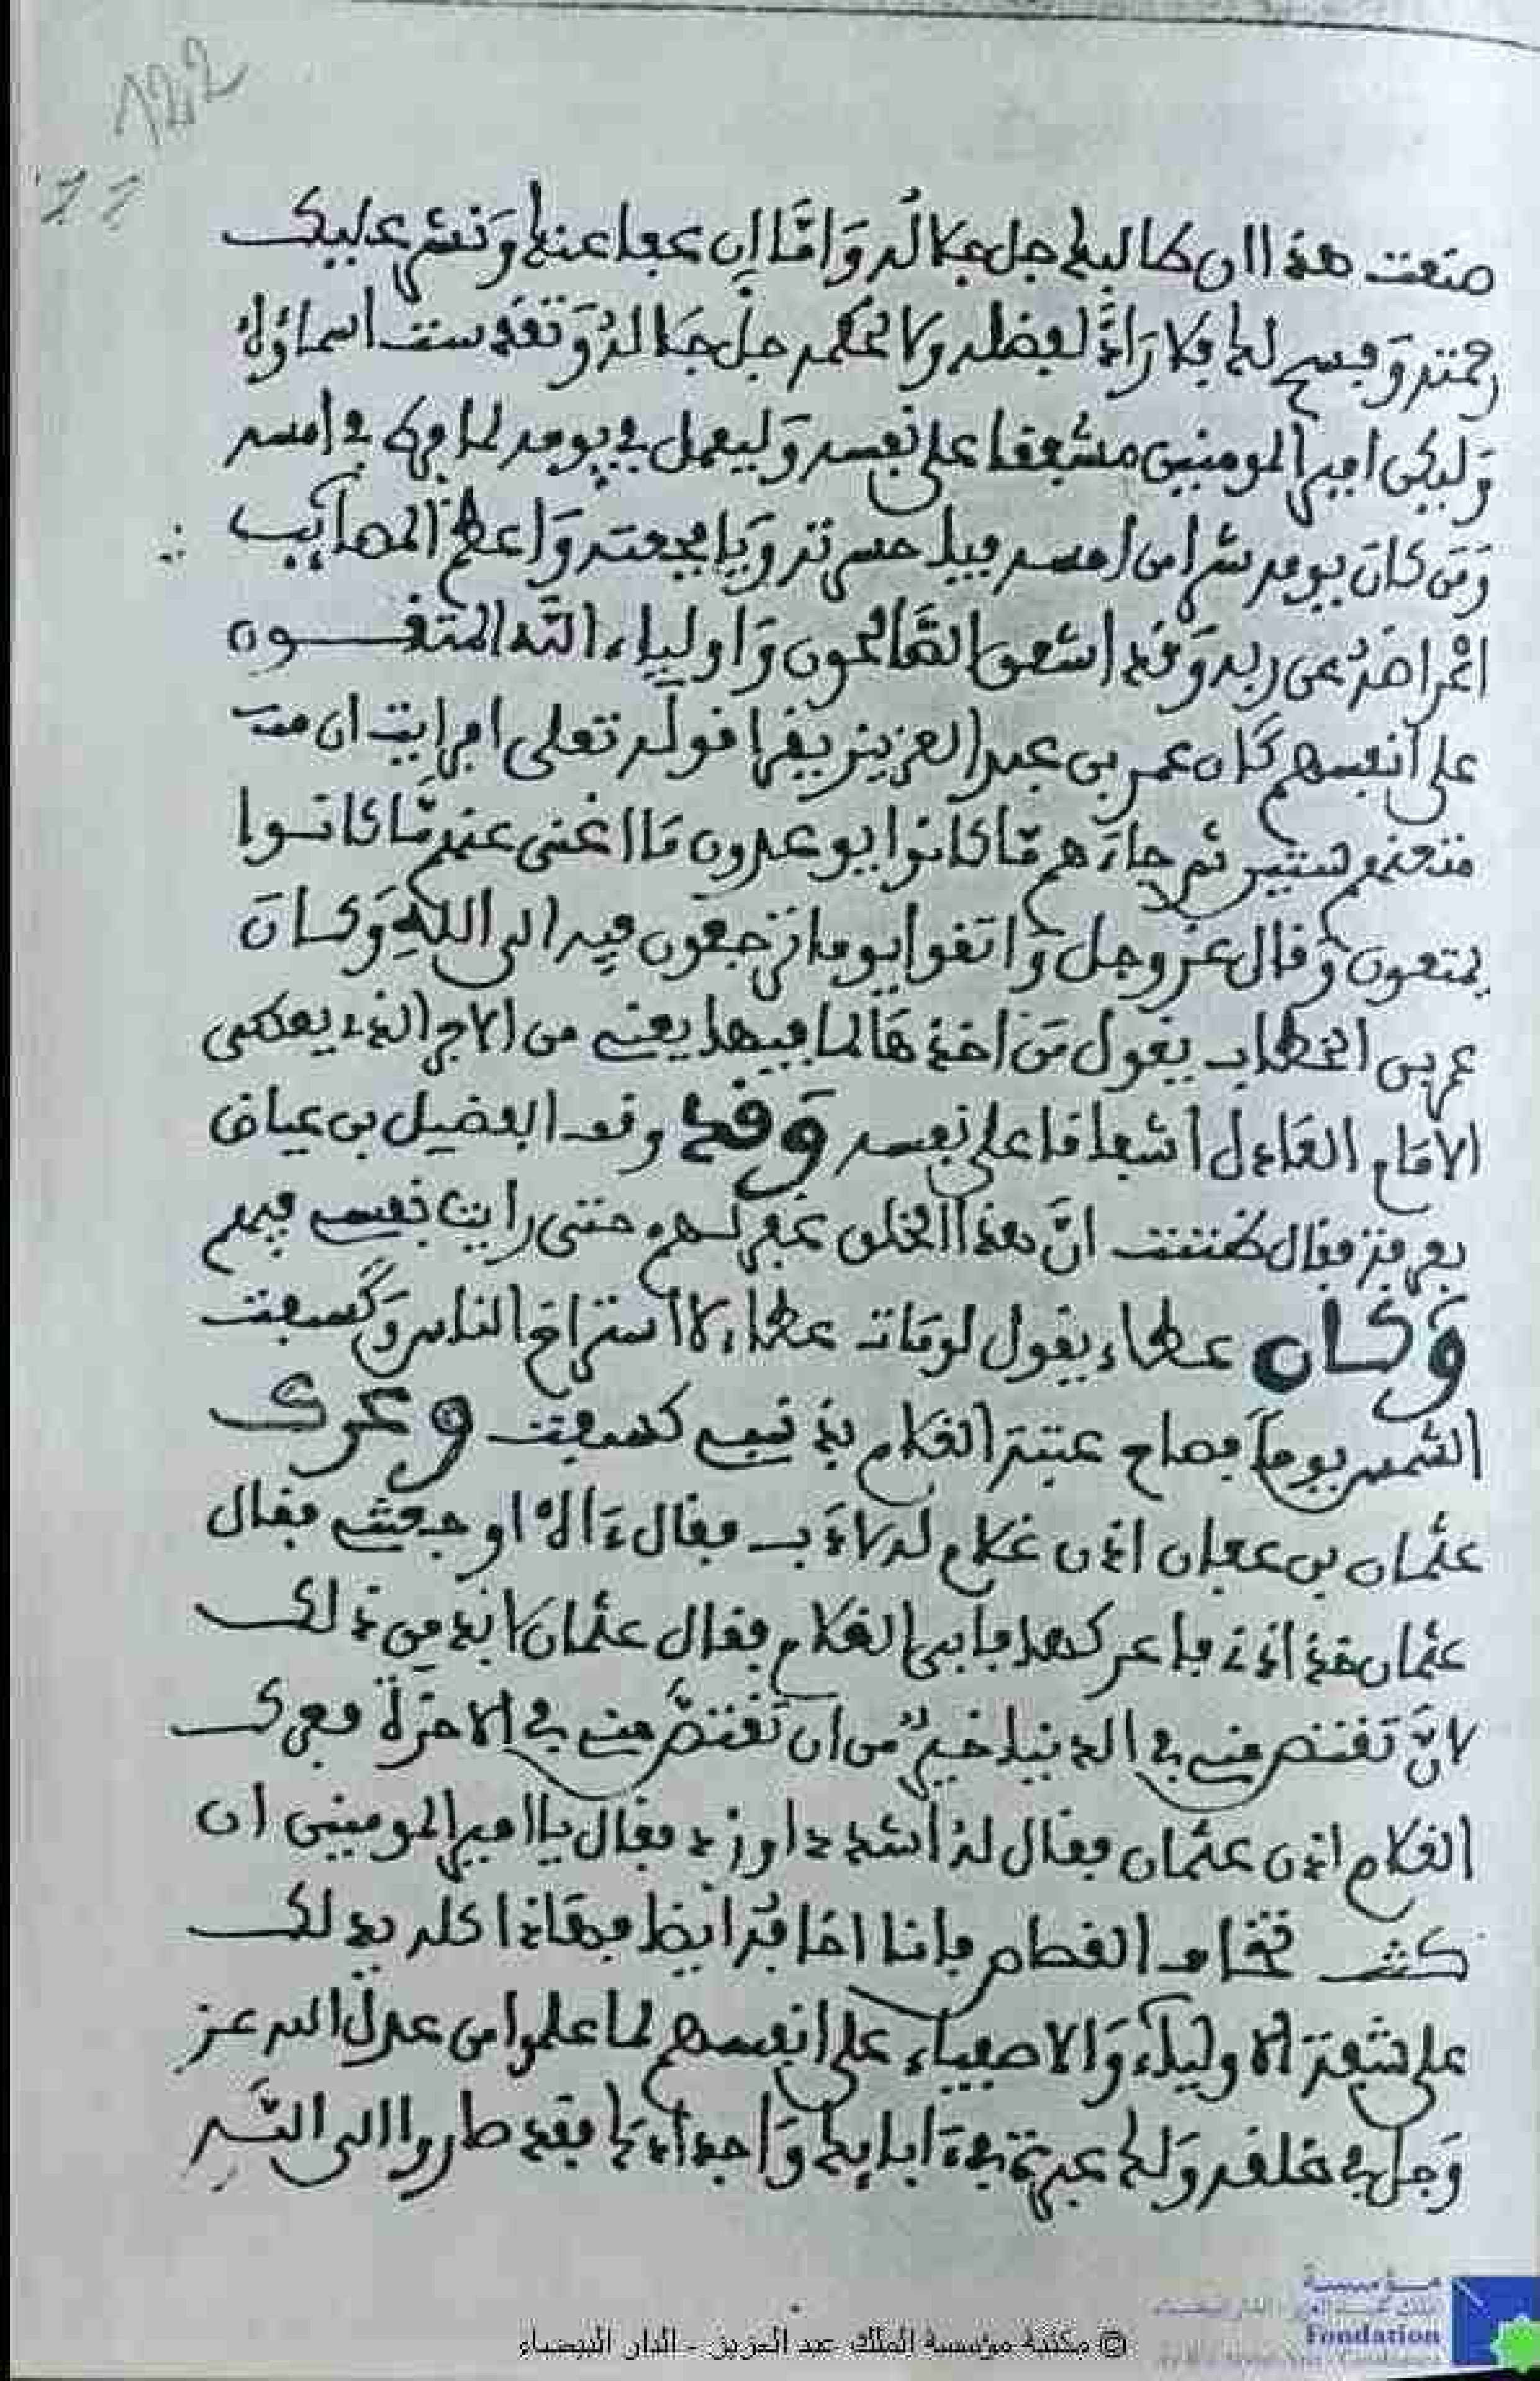 122
صنعت هذا ان طالبك جل جلاله واما ان عفا عنك ونشر عليك
رحمته وفسح لك فلا راد لفضله ولا لحكمه جل جلاله وتقدست اسماؤه
وليكن امير المومنين مشفقا على نفسه وليعمل في يومه لما فرط في امسه
ومن كان يومه شرا من امسه فيا حسرته ويا فجعته واعظم المصائب
اعراضه عن ربه وقد اشفق الصالحون واولياء الله المتقون
على انفسهم كان عمر بن عبد العزيز يقرا قوله تعلى افرايت ان
متعنهم سنين ثم جاءهم ما كانوا يوعدون ما اغنى عنهم ما كانوا
يمتعون وقال عز وجل واتقوا يوما ترجعون فيه الى الله وكان
عمر بن الخطاب يقول من اخذها لما فيها يعني من الاجر الذي يعطى
الامام العادل اشفاقا على نفسه وقد وقف الفضيل بن عياض
بعرفة فقال ظننت ان هذا الخلق غفر لهم حتى رايت نفسي فيهم
وكان عطاء يقول لو مات عطاء لاستراح الناس وكسفت
الشمس يوما فصاح عتبة الغلام بذنبي كسفت وعرك
عثمان بن عفان اذن غلام له لادب فقال ءاه اوجعتني فقال
عثمان فخذ اذني فاعركها فابى الغلام فقال عثمان لا بد من ذلك
لان تقتص مني في الدنيا خير من ان تقتص مني في الاخرة فعرك
الغلام اذن عثمان فقال له اشدد او زد فقال يا امير المومنين ان
كنت تخاف القصاص فانا اخافه ايضا فهاذا كله يدلك
على شفقة الاولياء والاصفياء على انفسهم لما علموا من عدل الله عز
وجل في خلقه ولك عبرة في ءابايك واجدادك فقد صاروا الى
© مكتبة مؤسسة الملك عبد العزيز - الدار البيضاء
مؤسسة
Fondation